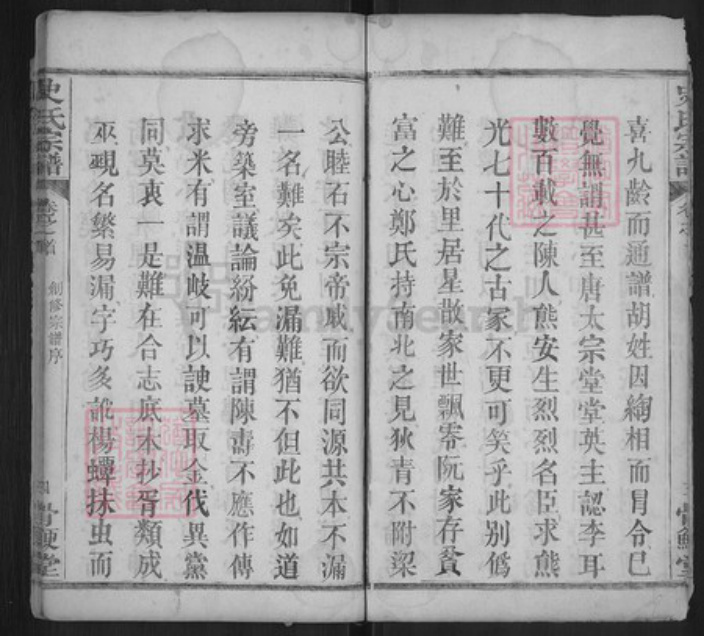 喜九齡而通譜胡姓因縐相而冒令已
覺無謂甚至唐太宗堂堂英主認李耳
數百載之陳人熊安生烈烈名臣求熊
光七十代之古冢不更可笑乎此別僞
難至於里居星散家世飄零阮家存貧
富之心鄭氏持南北之見狄青不附梁
公睦石不宗帝戚而欲同源共本不漏
一名難矣此免漏難猶不但此也如道
旁築室議論紛紜有謂陳壽不應作傳
求米有謂温岐可以諛墓取金伐異黨
同莫衷一是難在合志底本抄胥類成
巫覡名繁易漏字巧多訛楊蟫抹虫而
史氏宗譜
創修宗譜序
四
骨鯁堂
FamilySearch